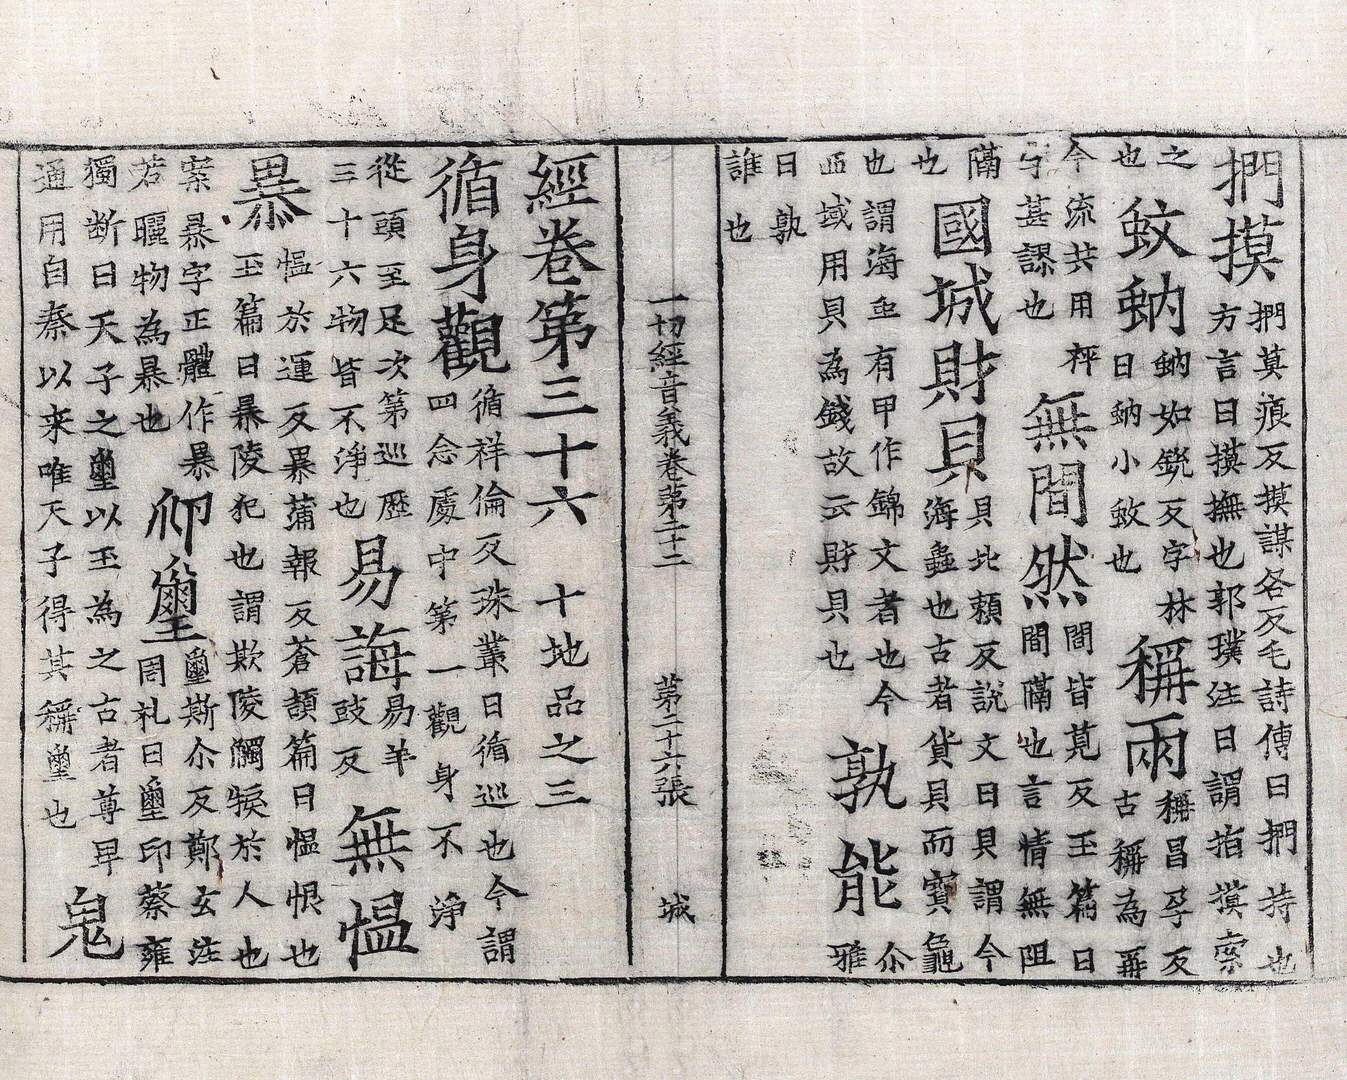 捫摸捫莫痕反摸謀各反毛詩傳曰捫持也方言曰摸撫也郭璞注曰謂指摸索
之也蚊蚋蚋如銳反字林曰蚋小蚊也稱兩稱昌孕反古稱為再
今流共用秤字甚謬也無間然間皆莧反玉篇曰間隔也言情無阻
隔也國城財貝貝北賴反說文曰貝謂今海蟲也古者貨貝而寶龜
也謂海虫有甲作錦文者也今西域用貝為錢故云財貝也孰能尒雅
曰孰誰也
一切經音義卷第二十二 第二十六張 城
經卷第三十六 十地品之三
循身觀循祥倫反珠叢曰循巡也今謂四念處中第一觀身不淨
從頭至足次第巡歷三十六物皆不淨也易誨易羊豉反無慍
暴慍於運反暴蒲報反蒼頡篇曰慍恨也玉篇曰暴陵犯也謂欺陵觸於人也
案暴字正體作暴若曬物為暴也印璽璽斯尒反鄭玄注周礼曰璽印蔡雍
獨断曰天子之璽以玉為之古者尊卑通用自秦以来唯天子得其稱璽也鬼